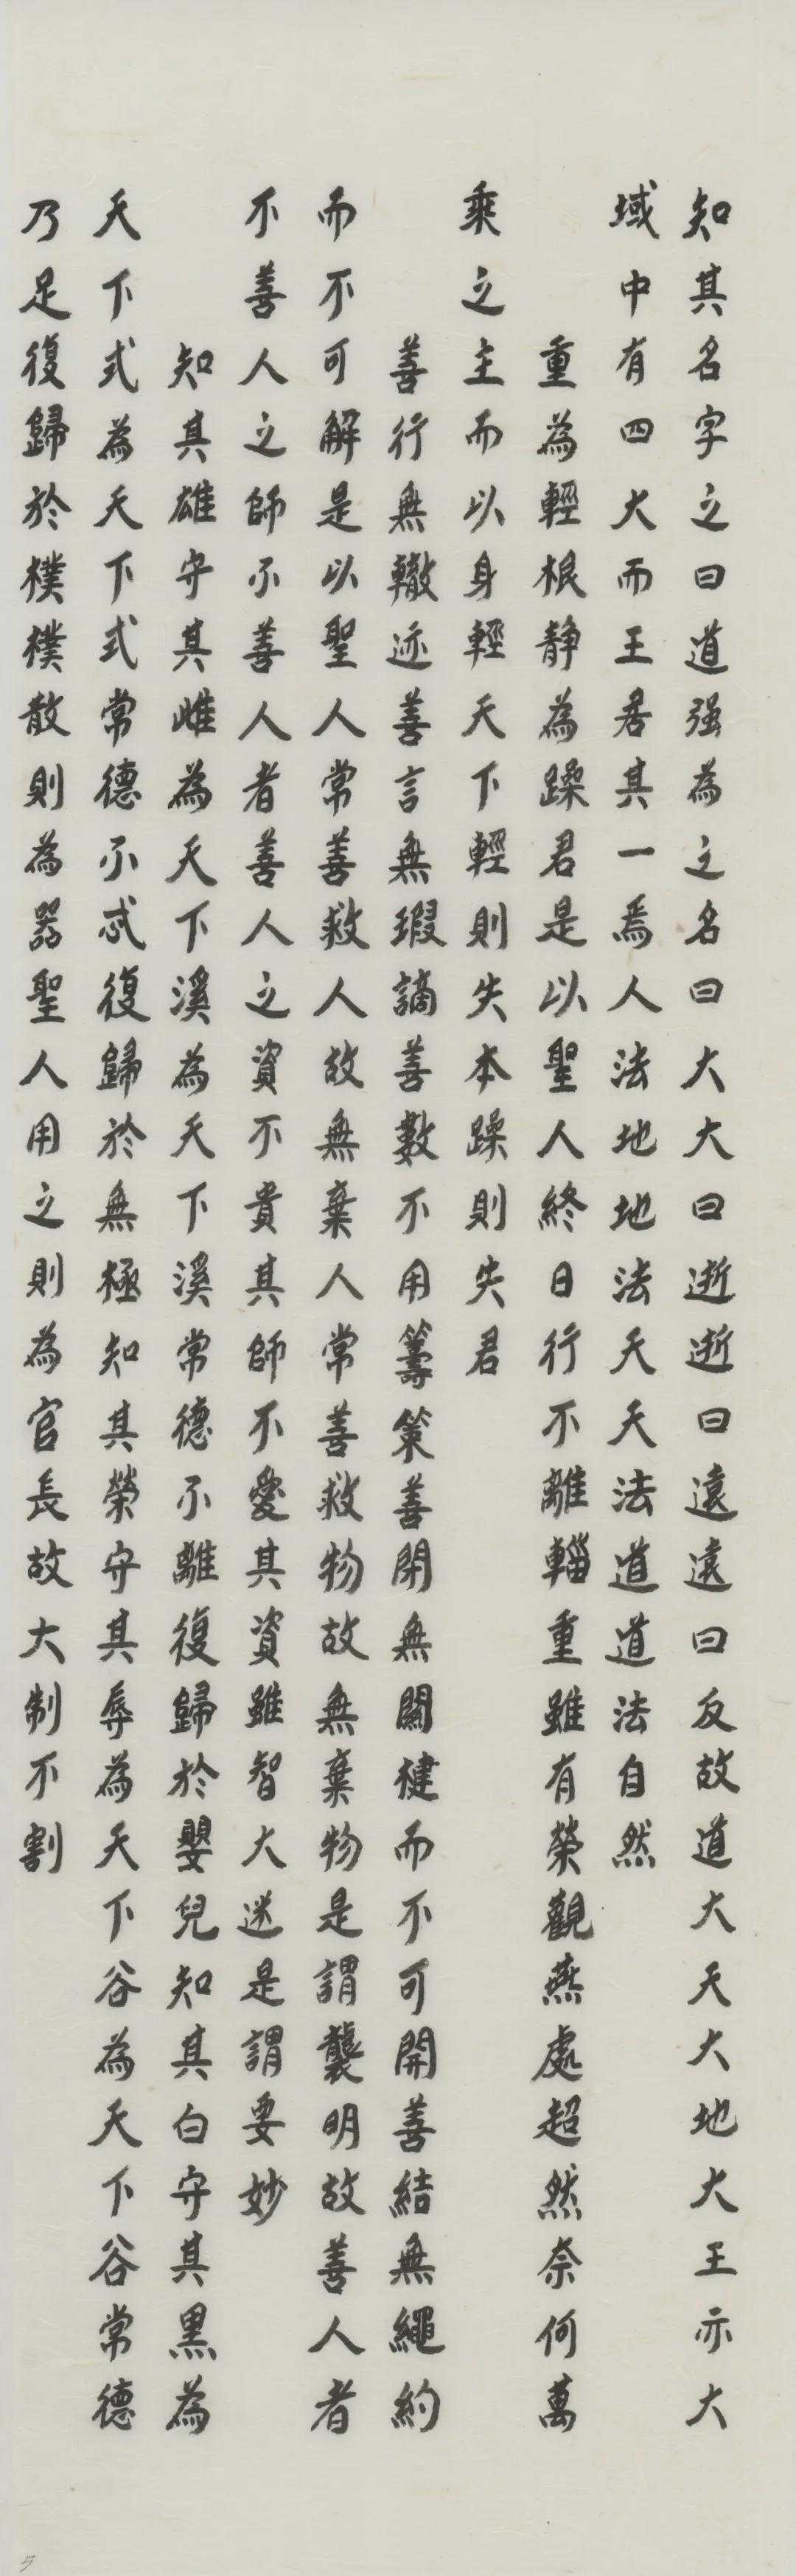 知其名字之曰道强為之名曰大大曰逝逝曰遠遠曰反故道大天大地大王亦大
域中有四大而王居其一焉人法地地法天天法道道法自然
重為輕根静為躁君是以聖人終日行不離輜重雖有榮觀燕處超然奈何萬
乘之主而以身輕天下輕則失本躁則失君
善行無轍迹善言無瑕謫善數不用籌策善閉無關楗而不可開善結無繩約
而不可解是以聖人常善救人故無棄人常善救物故無棄物是謂襲明故善人者
不善人之師不善人者善人之資不貴其師不愛其資雖智大迷是謂要妙
知其雄守其雌為天下溪為天下溪常德不離復歸於嬰兒知其白守其黑為
天下式為天下式常德不忒復歸於無極知其榮守其辱為天下谷為天下谷常德
乃足復歸於樸樸散則為器聖人用之則為官長故大制不割
5